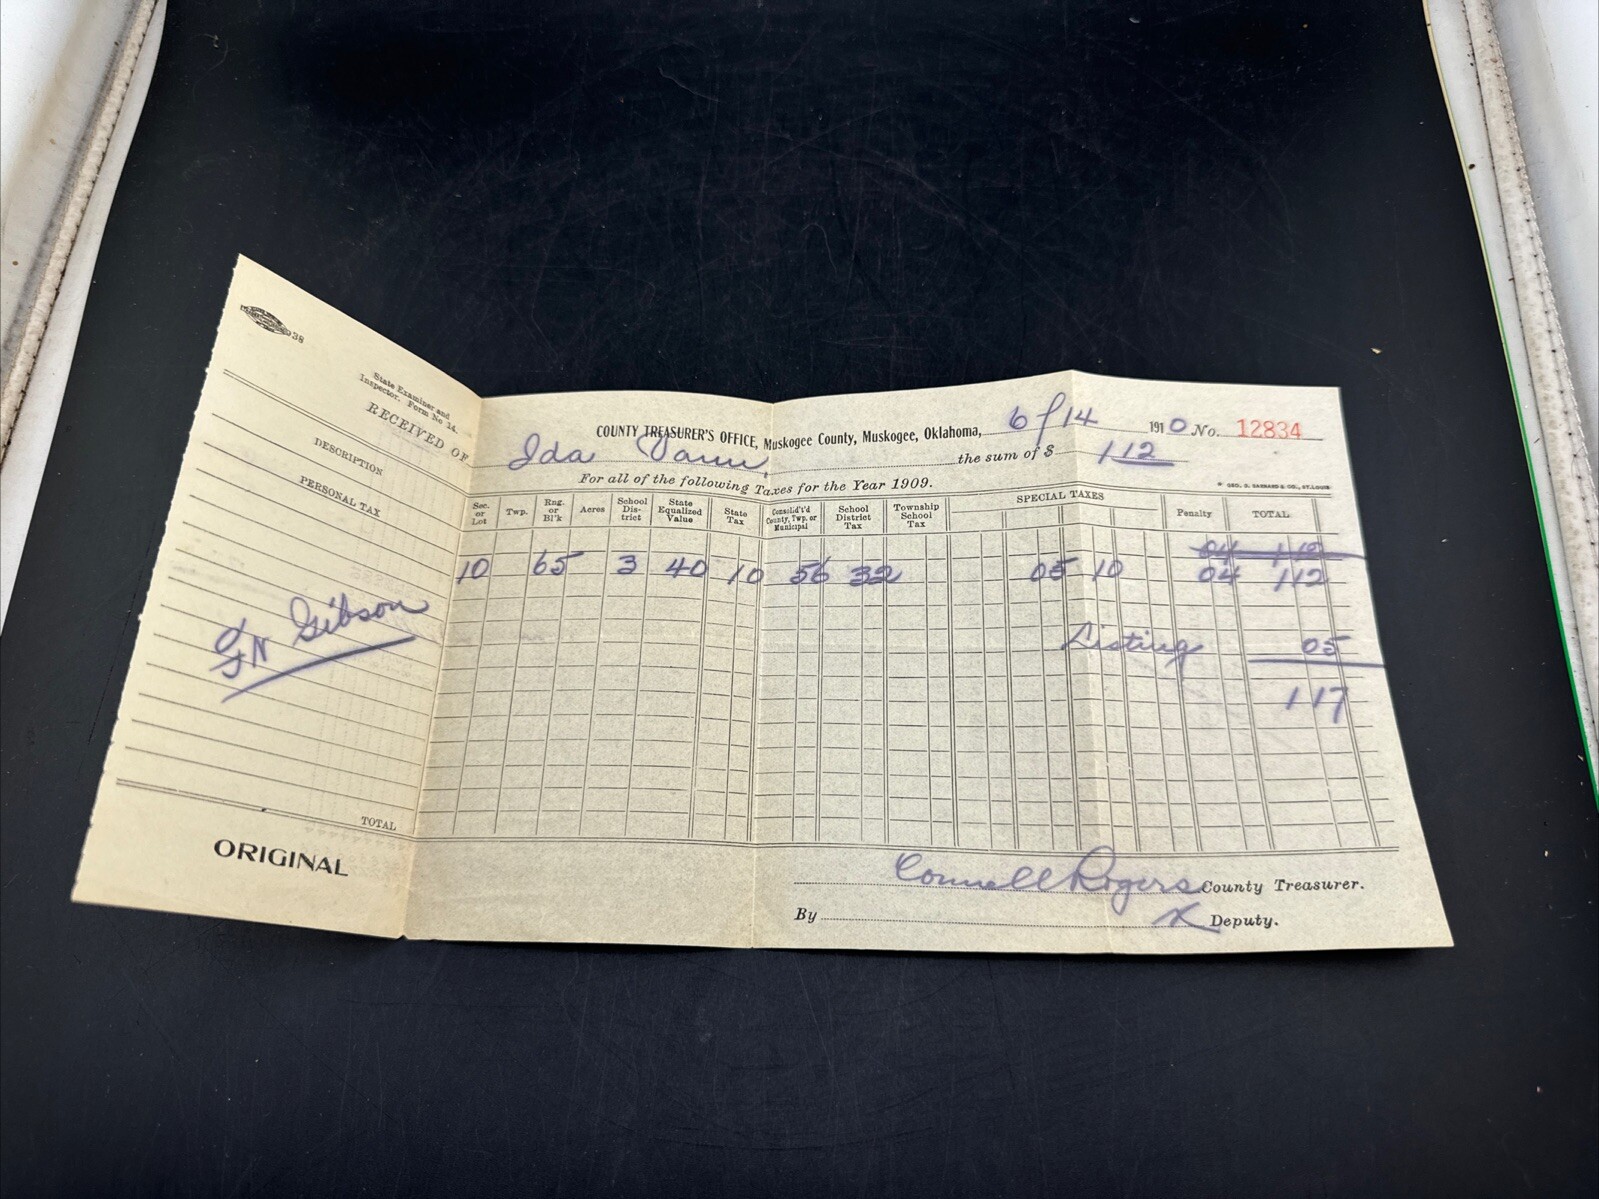 38
State Examiner and
Inspector. Form No 14.
COUNTY TREASURER'S OFFICE, Muskogee County, Muskogee, Oklahoma, 6/14 1910 No. 12834
RECEIVED OF Ida Vann, the sum of $ 1 12
For all of the following Taxes for the Year 1909.
DESCRIPTION Sec. or Lot Twp. Rng. or Bl'k Acres School Dis-trict State Equalized Value State Tax Consolid't'd County, Twp. or Municipal School District Tax Township School Tax SPECIAL TAXES Penalty TOTAL
PERSONAL TAX
04 1 12
10 65 3 40 10 56 32 05 10 04 1 12
Ft Gibson
Listing 05
1 17
TOTAL
ORIGINAL
Connell Rogers County Treasurer.
By X Deputy.